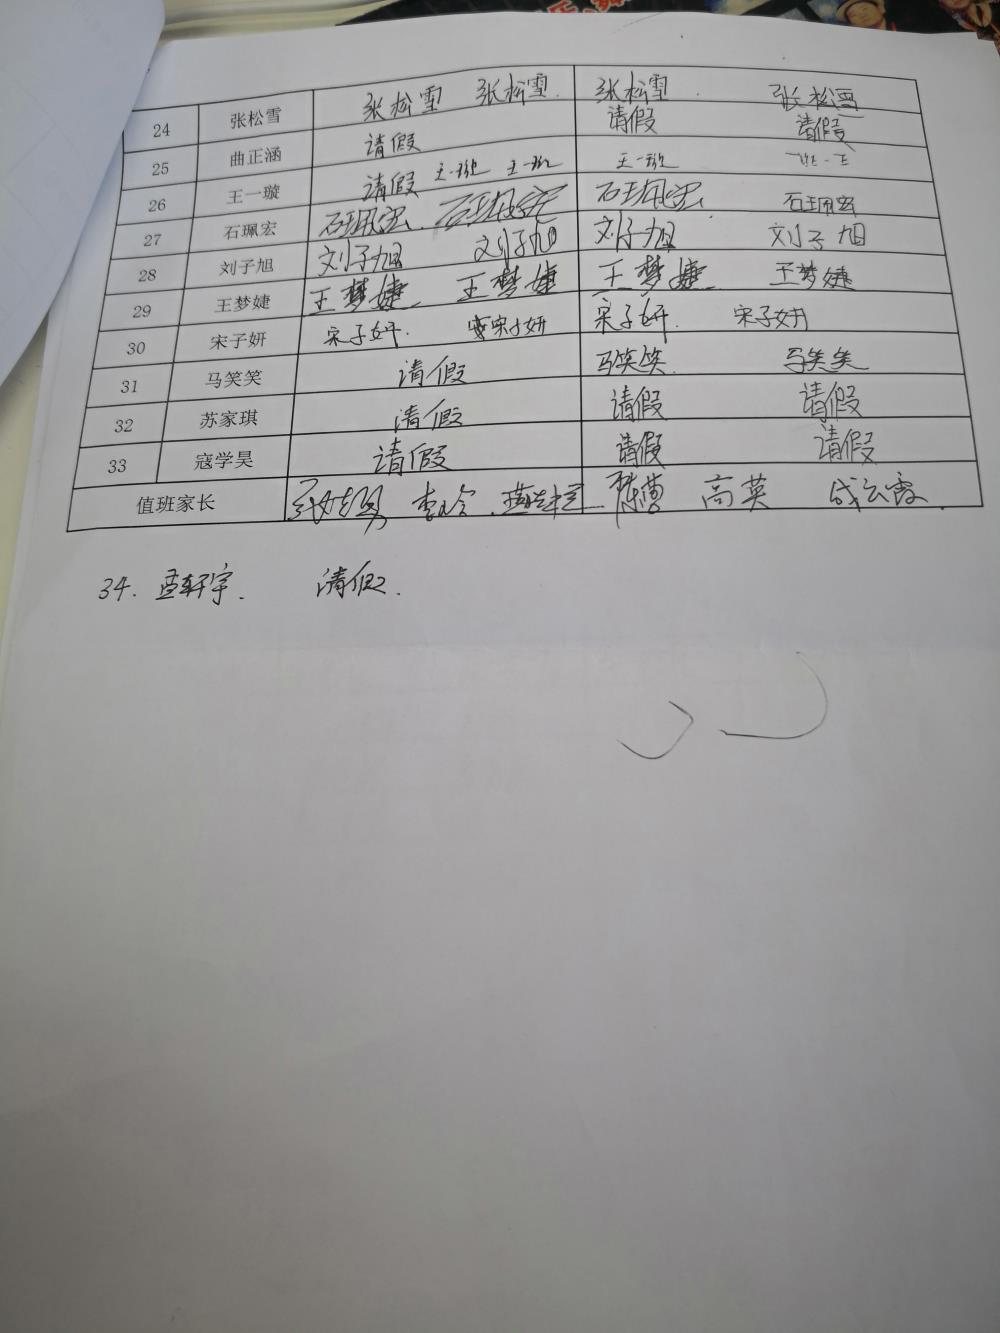 24 张松雪 张松雪 张松雪 张松雪 张松雪
25 曲正涵 请假 请假 请假
26 王一璇 请假 王一璇 王一璇 王一璇
27 石珮宏 石珮宏 石珮宏 石珮宏 石珮宏
28 刘子旭 刘子旭 刘子旭 刘子旭 刘子旭
29 王梦婕 王梦婕 王梦婕 王梦婕 王梦婕
30 宋子妍 宋子妍 宋子妍 宋子妍 宋子妍
31 马笑笑 请假 马笑笑 马笑笑
32 苏家琪 请假 请假 请假
33 寇学昊 请假 请假 请假
值班家长 高英 战云霞
34. 孟轩宇. 请假.